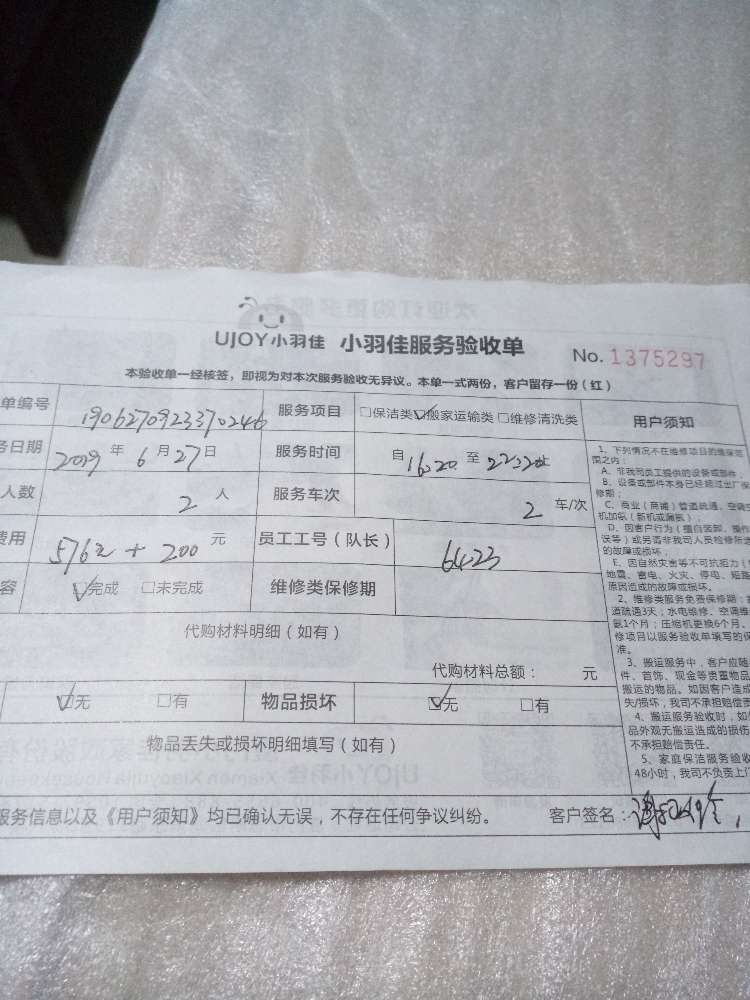 UJOY小羽佳 小羽佳服务验收单 No. 1375297
本验收单一经核签，即视为对本次服务验收无异议。本单一式两份，客户留存一份（红）
单编号 1906270923370246 服务项目 □保洁类 ☑搬家运输类 □维修清洗类 用户须知
务日期 2019 年 6 月 27 日 服务时间 自 16:20 至 22:32
人数 2 人 服务车次 2 车/次
费用 576元 + 200 元 员工工号（队长） 6423
容 ☑完成 □未完成 维修类保修期
代购材料明细（如有）
代购材料总额： 元
☑无 □有 物品损坏 ☑无 □有
物品丢失或损坏明细填写（如有）
服务信息以及《用户须知》均已确认无误，不存在任何争议纠纷。 客户签名：
1、下列情况不在维修项目的维保范
围之内：
A、非我司员工提供的设备或部件；
B、设备或部件本身已经超过出厂保
修期；
C、商业（商铺）管道疏通、空调空
机加氨（新机或漏氨）；
D、因客户行为（擅自装卸、操作
误等）或另请非我司人员检修所造
的故障或损坏；
E、因自然灾害等不可抗拒力（
地震、雷电、火灾、停电、短路
原因造成的故障或损坏。
2、维修类服务免费保修期：
道疏通3天；水电维修、空调维
氨1个月；压缩机更换6个月。
修项目以服务验收单填写的保
准。
3、搬运服务中，客户应随
件、首饰、现金等贵重物品
搬运的物品。如因客户造成
失/损坏，我司不承担赔偿责
4、搬运服务验收时，如
品外观无搬运造成的损伤
不承担赔偿责任。
5、家庭保洁服务验收
48小时，我司不负责上门